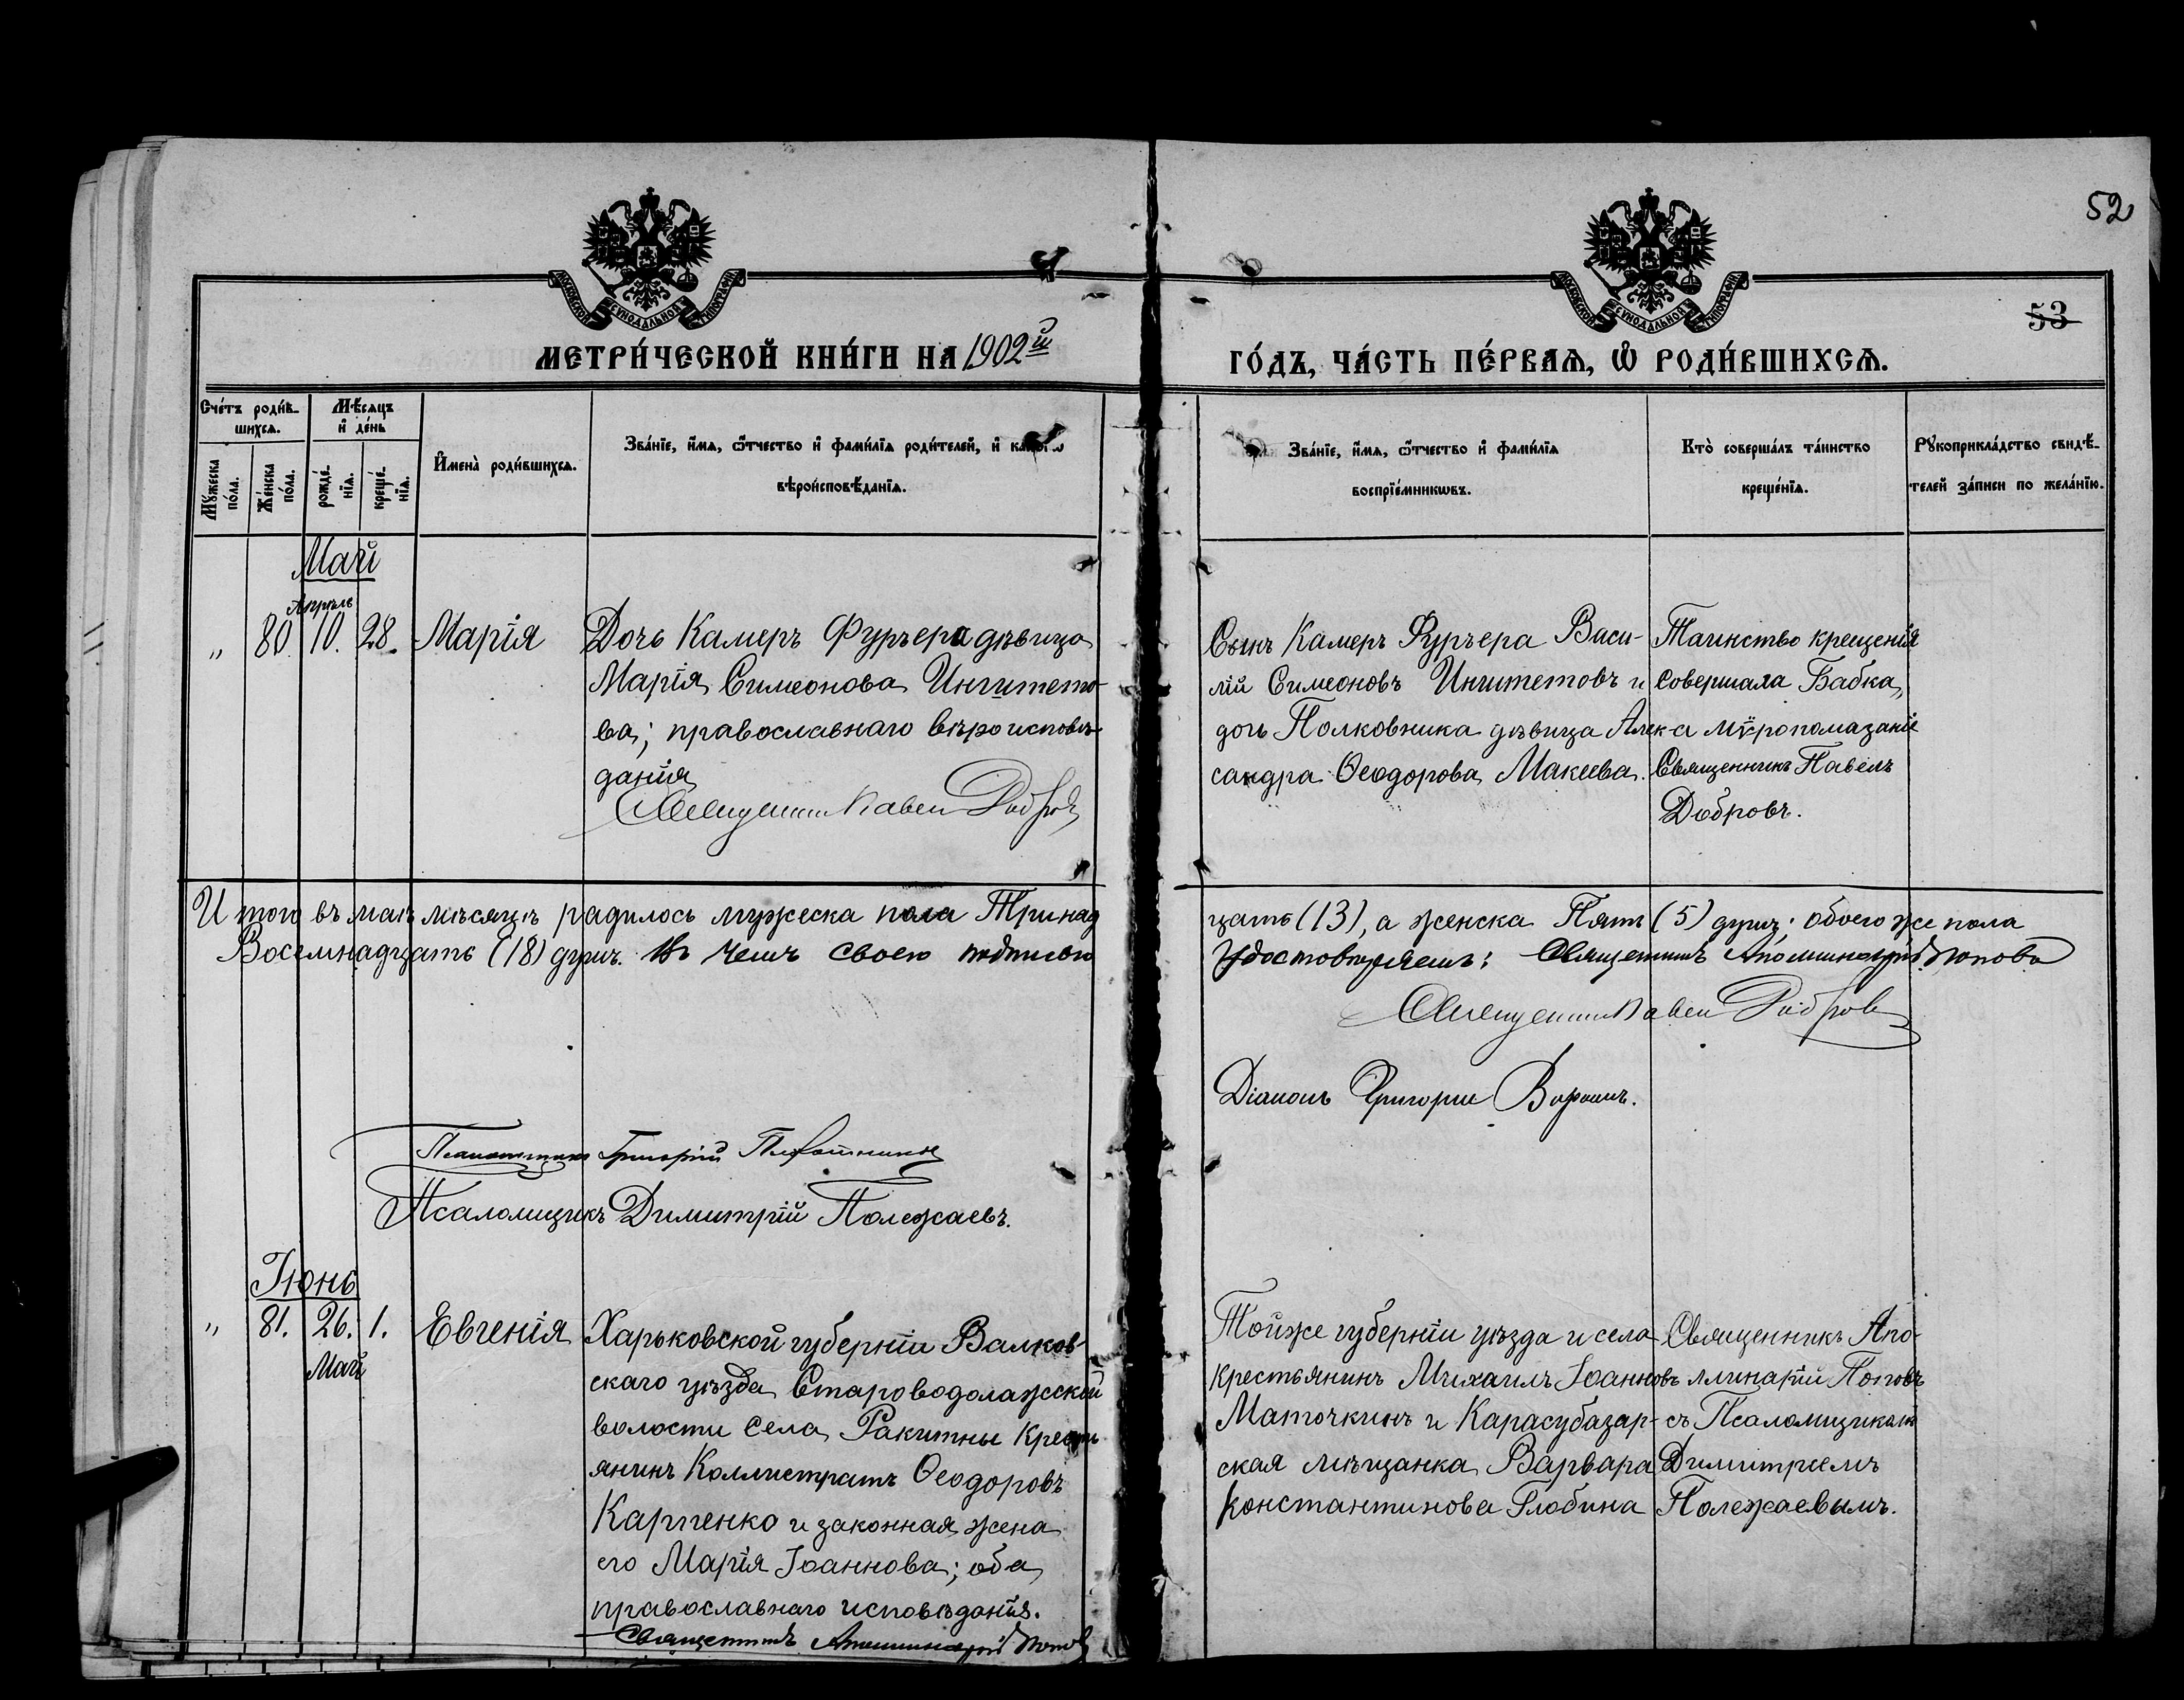 52
53
МОСКОВСКОЙ СѴНОДАЛЬНОЙ ТИПОГРАФІИ
МОСКОВСКОЙ СѴНОДАЛЬНОЙ ТИПОГРАФІИ
МЕТРИ́ЧЕСКОЙ КНИ́ГИ НА 1902й
ГО́ДЪ, ЧА́СТЬ ПЕ́РВАѦ, Ѡ҆ РОДИ́ВШИХСѦ.
Сче́тъ роди́в-
шихсѧ.
Мѣ́сѧцъ
и҆ де́нь
Мꙋ́жеска
по́ла.
Же́нска
по́ла.
рожде́-
нїѧ.
креще́-
нїѧ.
И҆мена̀ роди́вшихсѧ.
Зва́нїе, и҆́мѧ, ѻ҆́тчество и҆ фами́лїѧ роди́телей, и҆
вѣроисповѣ́данїѧ.
Зва́нїе, и҆́мѧ, ѻ҆́тчество и҆ фами́лїѧ
воспрїе́мникѡвъ.
Кто̀ соверша́лъ та́инство
креще́нїѧ.
Рꙋкоприкла́дство свидѣ́-
телей за́писи по жела́нїю.
Май
Апрѣль
„ 80 10. 28. Марія
Дочь Камеръ Фурьера дѣвица
Марія Симеонова Ингитето-
ва; православнаго вѣроисповѣ-
данія
Священник Павел Добров
Сынъ Камеръ Фурьера Васи-
лій Симеоновъ Ингитетовъ и
дочь Полковника дѣвица Алек-
сандра Ѳеодорова Макеева.
Таинство крещенія
совершала Бабка,
а мѵропомазаніе
Священникъ Павелъ
Добровъ.
Итого въ маѣ мѣсяцѣ радилось мужеска пола Тринад
цать (13), а женска Пять (5) душъ; обоего же пола
Восемнадцать (18) душъ. Въ чемъ своею подписью
удостовѣряемъ: Священникъ Аполлинарій Попов
Священник Павел Добров
Діаконъ Григорий
Псаломщикъ Григорій
Псаломщикъ Димитрій Полежаевъ.
Іюнь
„ 81. 26. 1. Евгенія
Май
Харьковской губерніи Валков-
скаго уѣзда Староводолажской
волости села Ракитны крестъ
янинъ Коллистратъ Ѳеодоровъ
Карпенко и законная жена
его Марія Іоаннова; оба
православнаго исповѣданія.
Священникъ Аполлинарій Попов
Тойже губерніи уѣзда и села
крестьянинъ Михаилъ Іоанновъ
Маточкинъ и Карасубазар-
ская мѣщанка Варвара
Константинова Глобина
Священникъ Апо-
ллинарій Поповъ
съ Псаломщикомъ
Димитріемъ
Полежаевымъ.